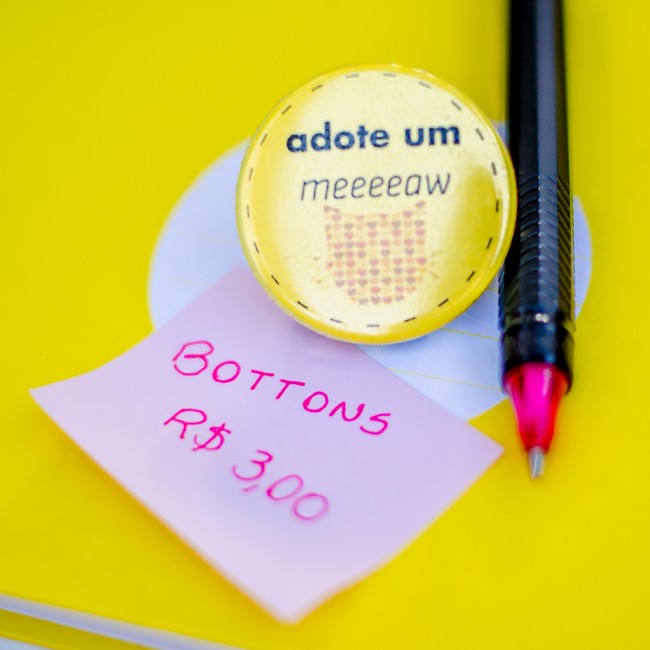 adote um
meeeeaw
BOTTONS
R$ 3,00